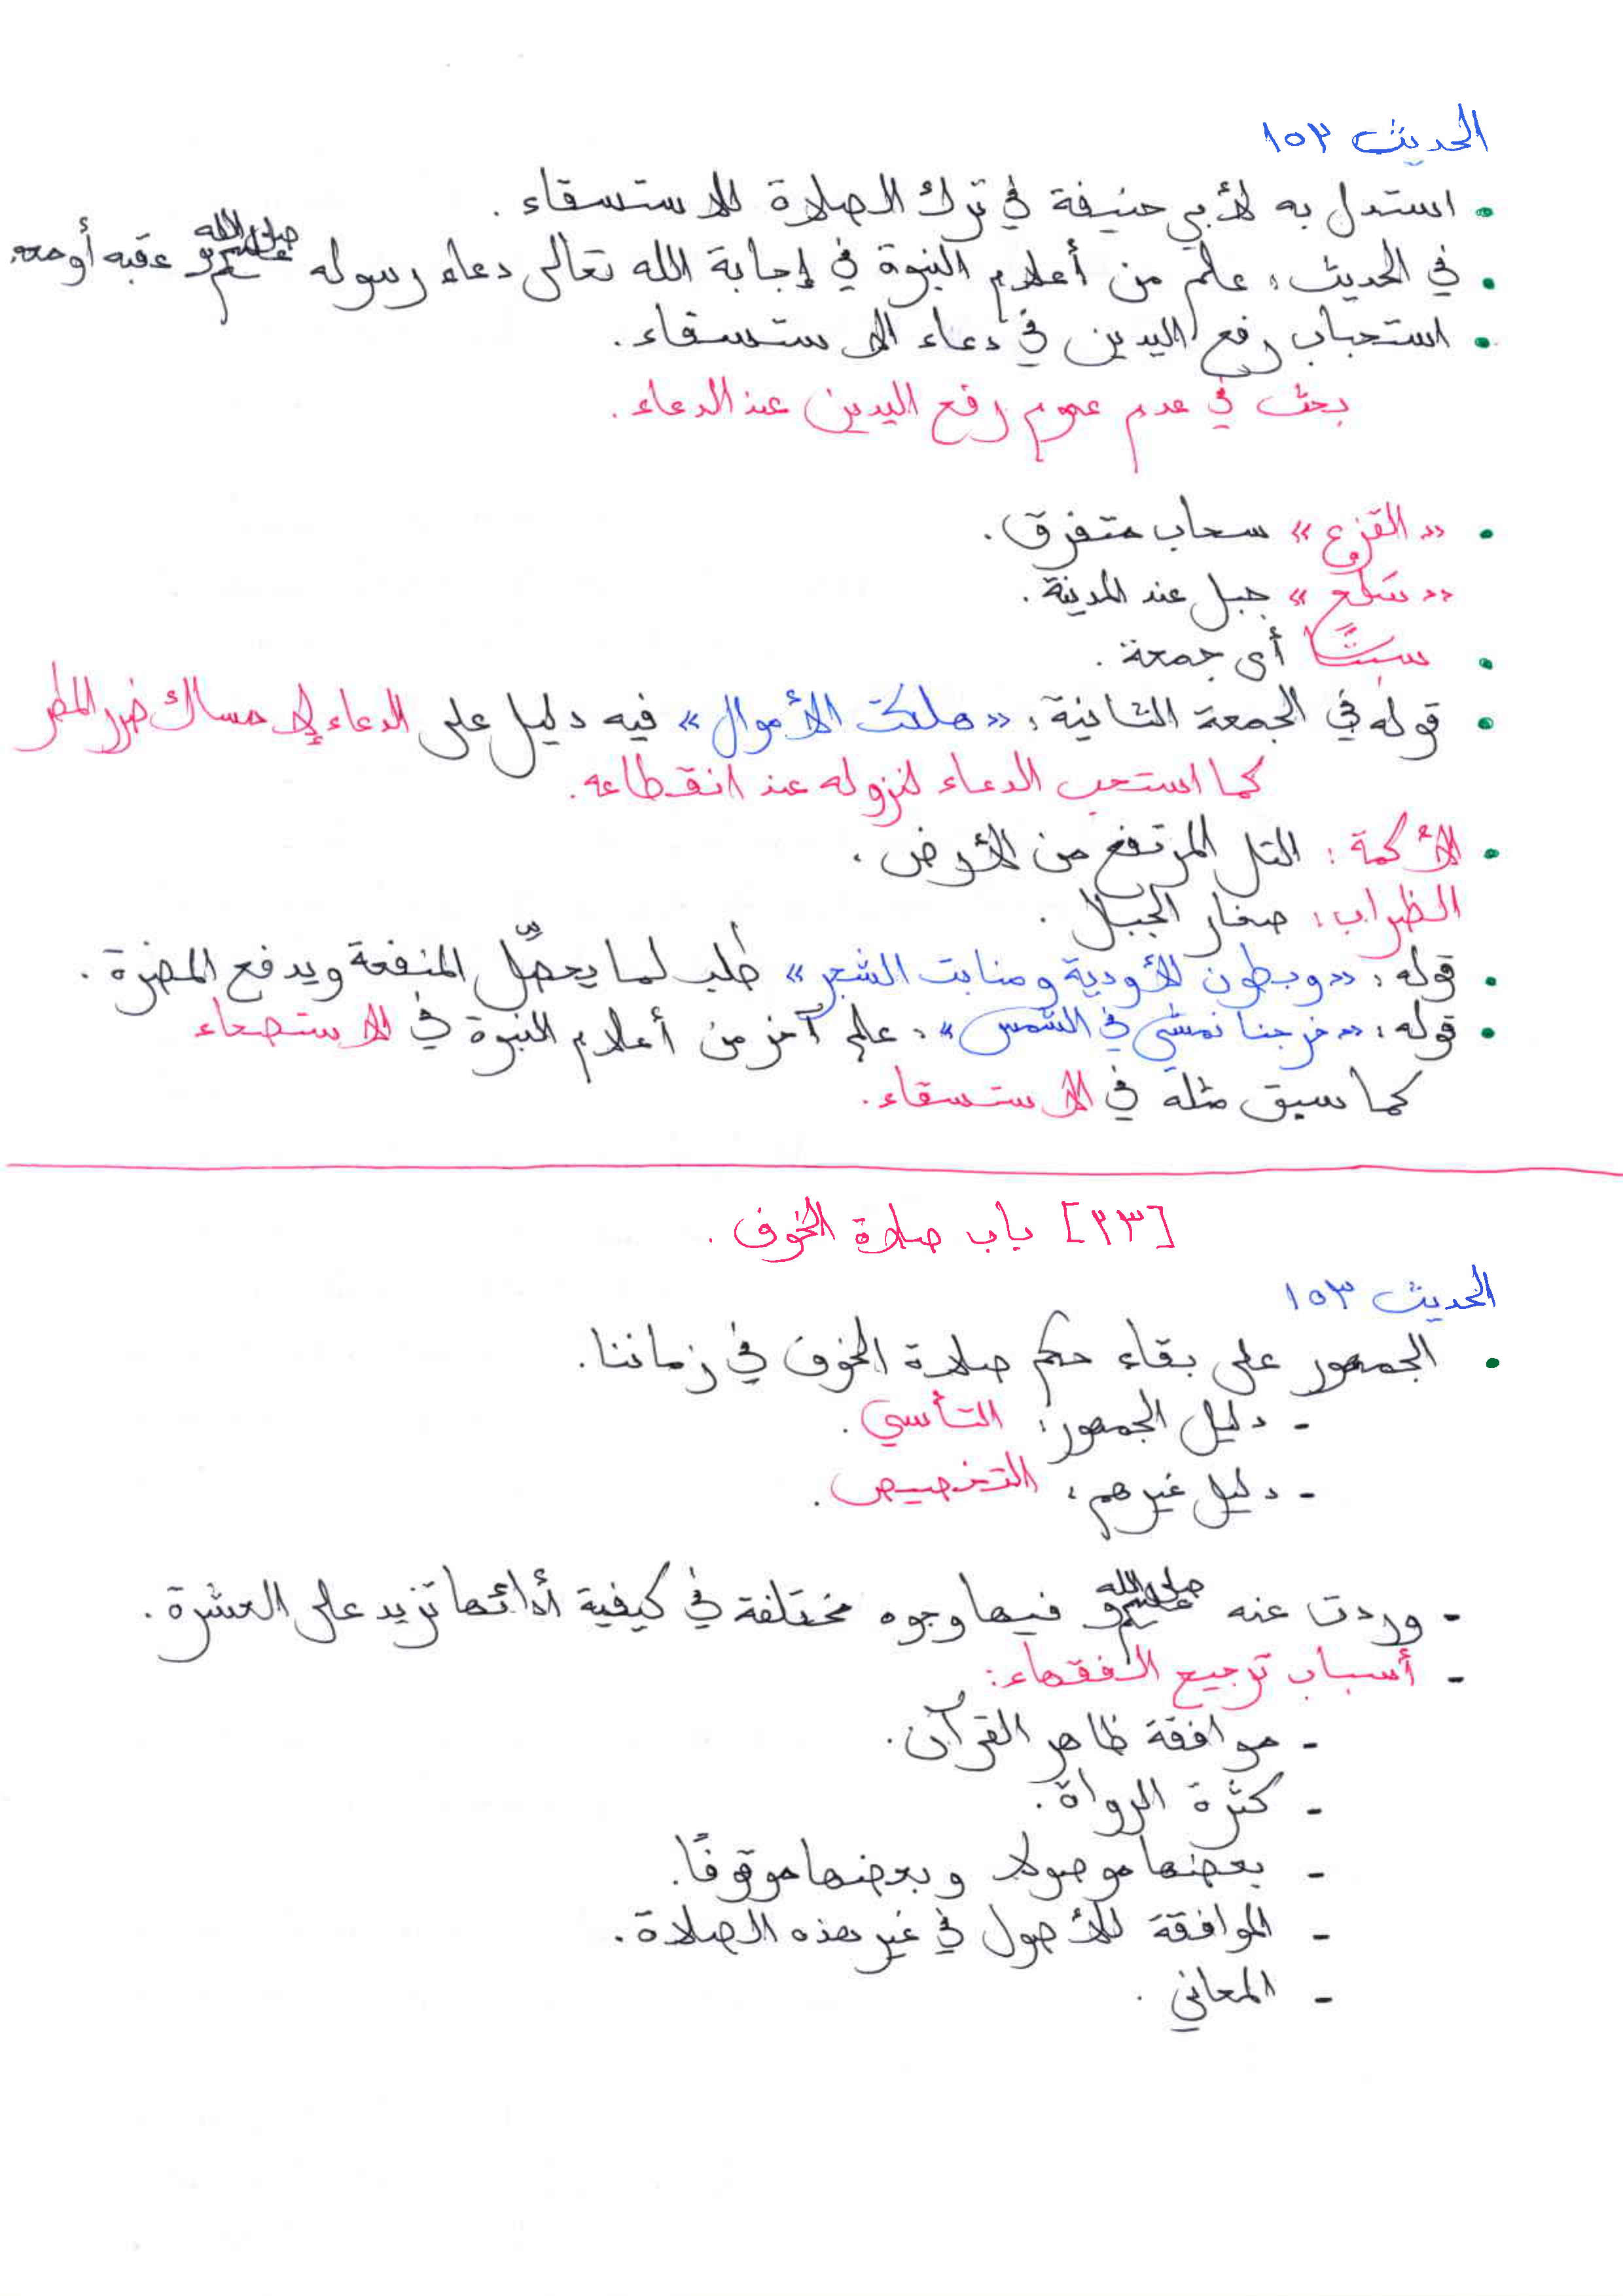 الحديث ١٥٢
• استدل به لأبي حنيفة في ترك الصلاة للاستسقاء .
• في الحديث : علم من أعلام النبوة في إجابة الله تعالى دعاء رسوله صلى الله عليه وسلم عقبه أو معه .
• استحباب رفع اليدين في دعاء الاستسقاء .
بحث في عدم عموم رفع اليدين عند الدعاء .
• «القزع» سحاب متفرق .
«سَلْع» جبل عند المدينة .
• سبتًا أي جمعة .
• قوله في الجمعة الثانية : «هلكت الأموال» فيه دليل على الدعاء لإمساك ضرر المطر
كما استحب الدعاء لنزوله عند انقطاعه .
• الأكمة : التل المرتفع من الأرض .
الظراب : صغار الجبال .
• قوله : «وبطون الأودية ومنابت الشجر» طلب لما يحصّل المنفعة ويدفع المضرة .
• قوله : «خرجنا نمشي في الشمس» : علم آخر من أعلام النبوة في الاستصحاء
كما سبق مثله في الاستسقاء .
[٢٣] باب صلاة الخوف .
الحديث ١٥٣
• الجمهور على بقاء حكم صلاة الخوف في زماننا .
- دليل الجمهور : التأسي .
- دليل غيرهم : التخصيص .
- وردت عنه صلى الله عليه وسلم فيها وجوه مختلفة في كيفية أدائها تزيد على العشرة .
- أسباب ترجيح الفقهاء :
- موافقة ظاهر القرآن .
- كثرة الرواة .
- بعضها موصولا وبعضها موقوفًا .
- الموافقة للأصول في غير هذه الصلاة .
- المعاني .